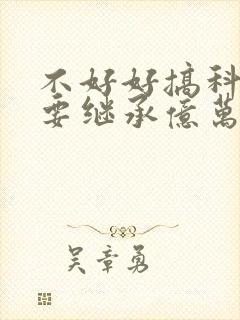 不好好搞科
要继承億萬
吴章勇